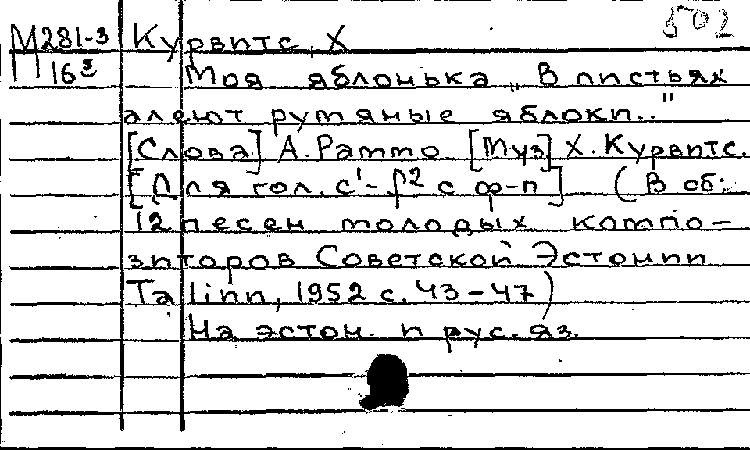 502
М281-3 Курвитс, Х
16³ Моя яблонька „В листьях
алеют румяные яблоки.."
[Слова] А. Рammo [Муз] Х. Курвитс.
[Для гол. с¹-f² с ф-п] (В сб:
12 песен молодых компо-
зиторов Советской Эстонии
Talinn, 1952 с. 43-47)
На эстон. и рус. яз.